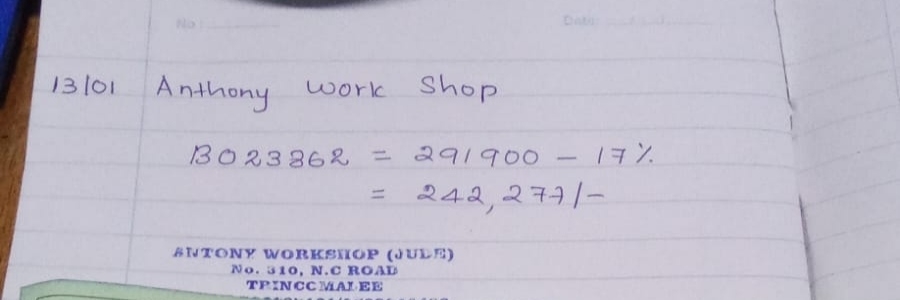 No:
Date:
13/01 Anthony Work Shop
B023862 = 291900 - 17%
= 242,277/-
ANTONY WORKSHOP (JULE)
No. 310, N.C ROAD
TRINCOMALEE